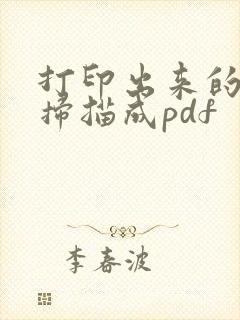 打印出来的
扫描成pdf
李春波